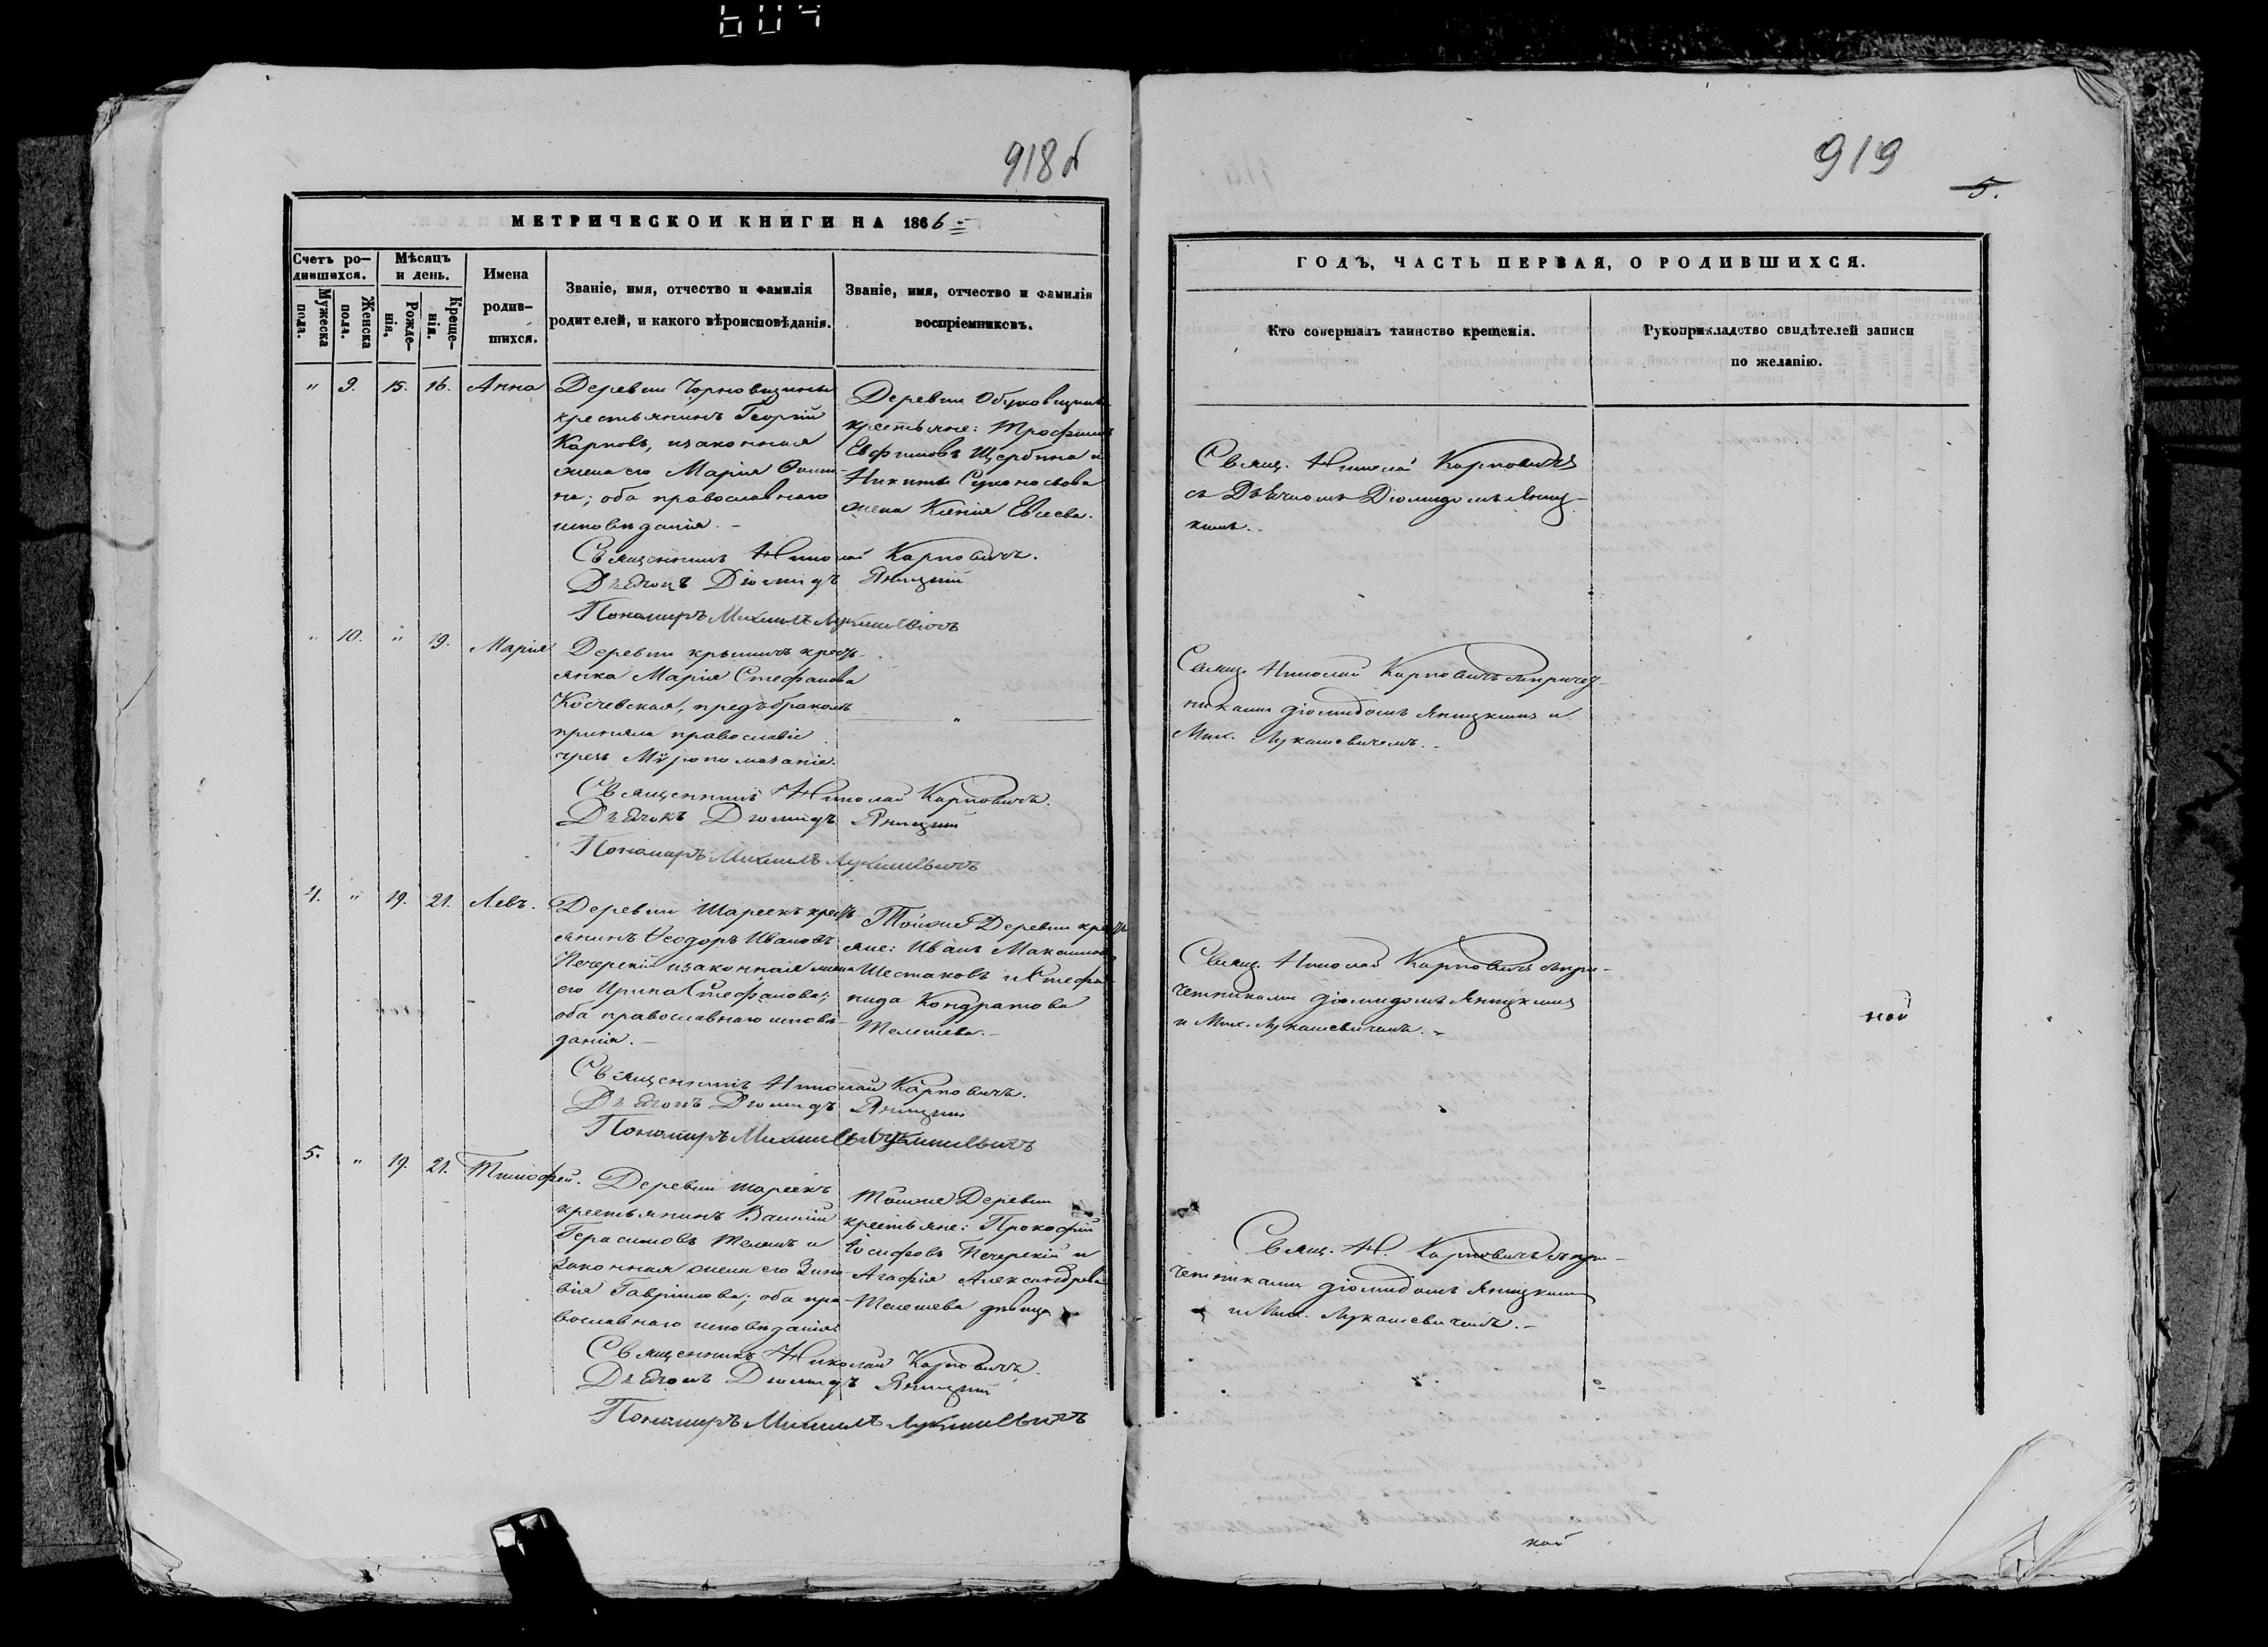 604
918б
МЕТРИЧЕСКОЙ КНИГИ НА 1866
Счетъ ро-
дившихся.
Мужеска пола.
Женска пола.
Мѣсяцъ
и день.
Рожде-
нія.
Креще-
нія.
Имена
родив-
шихся.
Званіе, имя, отчество и фамилія
родителей, и какого вѣроисповѣданія.
Званіе, имя, отчество и фамилія
воспріемниковъ.
" 9. 15. 16. Анна
Деревни
крестьянинъ Георгій
Карповъ, и законная
жена его Марія
на; оба православнаго
исповѣданія. -
Деревни
крестьяне: Трофимъ
Евфимовъ Щербина и
Никиты
жена Ксенія
Священникъ Николай Карповичъ.
Дьячокъ Діомидъ Яницкій
Пономарь Михаилъ Лукашевичъ
" 10. " 19. Марія
Деревни кресть-
янка Марія Стефанова
Косчевская, предъ бракомъ
приняла православіе
чрезъ Мѵропомазаніе.
"
Священникъ Николай Карповичъ.
Дьячокъ Діомидъ Яницкій
Пономарь Михаилъ Лукашевичъ
4. " 19. 21. Левъ.
Деревни Шареекъ кресть-
янинъ Ѳеодоръ Ивановъ
Печерскій и законная жена
его Ирина Стефанова;
оба православнаго исповѣ-
данія. -
Тойже Деревни кресть-
яне: Иванъ Максимовъ
Шестаковъ и Степа-
нида Кондратова
Телешева. -
Священникъ Николай Карповичъ.
Дьячокъ Діомидъ Яницкій
Пономарь Михаилъ Лукашевичъ
5. " 19. 21. Тимофей.
Деревни Шареекъ
крестьянинъ Василій
Герасимовъ Телешъ и
законная жена его Зино-
вія Гавріилова; оба пра-
вославнаго исповѣданія.
Тойже Деревни
крестьяне: Прокофій
Іосифовъ Печерскій и
Агафія Александрова
Телешева дѣвица
Священникъ Николай Карповичъ.
Дьячокъ Діомидъ Яницкій
Пономарь Михаилъ Лукашевичъ
919
5.
ГОДЪ, ЧАСТЬ ПЕРВАЯ, О РОДИВШИХСЯ.
Кто совершалъ таинство крещенія.
Рукоприкладство свидѣтелей записи
по желанію.
Свящ. Николай Карповичъ
съ Дьячкомъ Діомидомъ Яниц-
кимъ. -
Свящ. Николай Карповичъ съ причет-
никами Діомидомъ Яницкимъ и
Мих. Лукашевичемъ. -
Свящ. Николай Карповичъ съ при-
четниками Діомидомъ Яницкимъ
и Мих. Лукашевичемъ. -
ной
Свящ. Н. Карповичъ съ при-
четниками Діомидомъ Яницкимъ
и Мих. Лукашевичемъ. -
ной